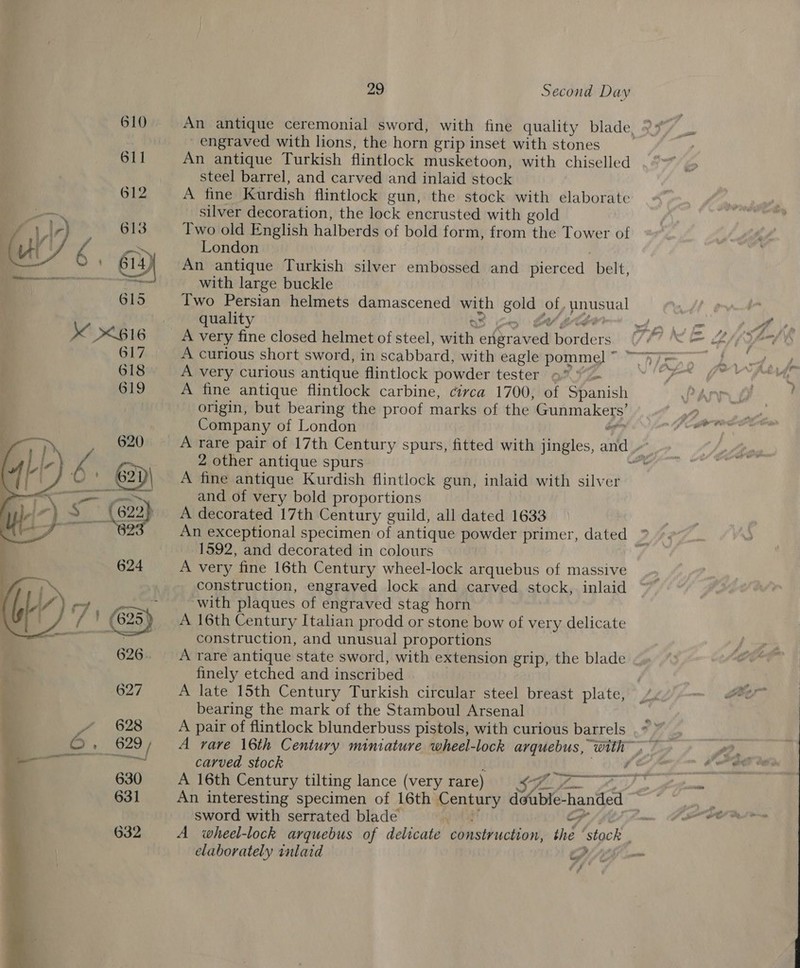 29 Second Day
610 An antique ceremonial sword, with fine quality blade,
engraved with lions, the horn grip inset with stones
611 An antique Turkish flintlock musketoon, with chiselled
steel barrel, and carved and inlaid stock
612 A fine Kurdish flintlock gun, the stock with elaborate
silver decoration, the lock encrusted with gold
613 Two old English halberds of bold form, from the Tower of
London
614 An antique Turkish silver embossed and pierced belt,
with large buckle
615 Two Persian helmets damascened with gold of unusual
quality
616 A very fine closed helmet of steel, with engraved borders
617 A curious short sword, in scabbard, with eagle pommel
618 A very curious antique flintlock powder tester
619 A fine antique flintlock carbine, circa 1700, of Spanish
origin, but bearing the proof marks of the Gunmakers'
Company of London
620 A rare pair of 17th Century spurs, fitted with jingles, and
2 other antique spurs
621 A fine antique Kurdish flintlock gun, inlaid with silver
and of very bold proportions
622 A decorated 17th Century guild, all dated 1633
623 An exceptional specimen of antique powder primer, dated
1592, and decorated in colours
624 A very fine 16th Century wheel-lock arquebus of massive
construction, engraved lock and carved stock, inlaid
with plaques of engraved stag horn
625 A 16th Century Italian prodd or stone bow of very delicate
construction, and unusual proportions
626 A rare antique state sword, with extension grip, the blade
finely etched and inscribed
627 A late 15th Century Turkish circular steel breast plate,
bearing the mark of the Stamboul Arsenal
628 A pair of flintlock blunderbuss pistols, with curious barrels
629 A rare 16th Century miniature wheel-lock arquebus, with
carved stock
630 A 16th Century tilting lance (very rare)
631 An interesting specimen of 16th Century double-handed
sword with serrated blade
632 A wheel-lock arquebus of delicate construction, the stock
elaborately inlaid